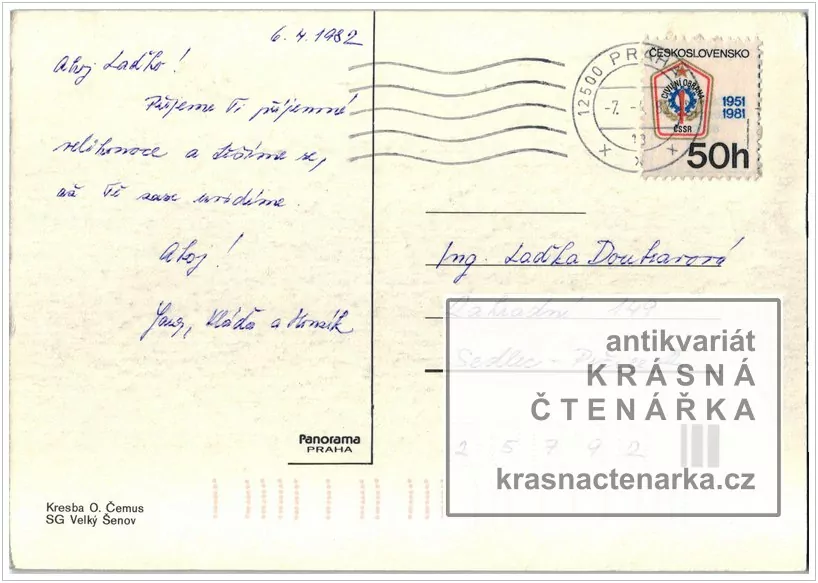 6. 4. 1982
Ahoj Laďko!
Přejeme Ti příjemné
velikonoce a těšíme se,
až Tě zase uvidíme.
Ahoj!
Vláďa a Honzík
Panorama
PRAHA
Kresba O. Čemus
SG Velký Šenov
12500 PRAHA
-7. -4.
ČESKOSLOVENSKO
CIVILNÍ OBRANA
1951
1981
ČSSR
50h
Ing. Laďka Douharová
Zahradní 149
Sedlec -
25792
antikvariát
KRÁSNÁ
ČTENÁŘKA
krasnactenarka.cz